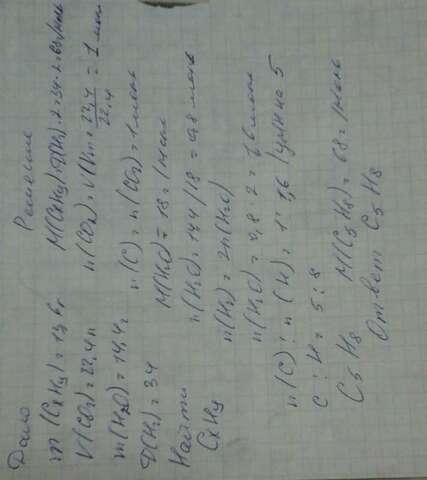 Дано
m (CxHy) = 13,6г
V(CO2) = 22,4л
m(H2O) = 14,4г
D(H2) = 34
Найти
CxHy
Решение
M(CxHy) = D(H2)·2 = 34·2 = 68г/моль
n(CO2) = V/Vm = 22,4/22,4 = 1 моль
n(C) = n(CO2) = 1 моль
M(H2O) = 18 г/моль
n(H2O) = 14,4/18 = 0,8 моль
n(H) = 2n(H2O)
n(H2O) = 0,8·2 = 1,6 моль
n(C) : n(H) = 1:1,6 | умн на 5
C : H = 5:8
C5H8 M(C5H8) = 68г/моль
Ответ C5H8